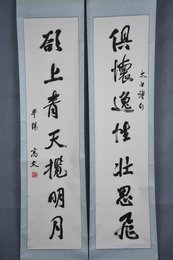 俱懷逸性壯思飛
太白詩句
欲上青天攬明月
平陽
高文